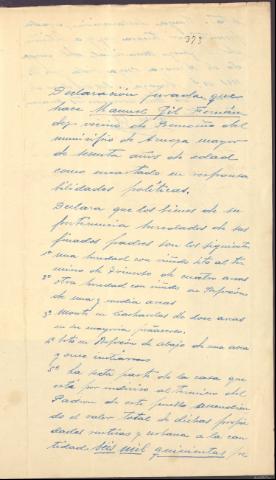 373
Declaración jurada que
hace Manuel Gil Fernán
dez vecino de del
municipio de mayor
de sesenta años de edad
como encartado en responsa
bilidades políticas.
Declara que los bienes de su
pertenencia heredados de sus
finados padres son los siguientes
1º una heredad con viñedo sita al tér
mino de de cuatro areas
2º otra heredad con viñedo en
de una y media areas
3º Monte en de doce areas
en su mayoria peñascoso.
4º Sito en de abajo de una area
y once centiareas
5º La sexta parte de la casa que
está por indiviso al termino del
de este pueblo ascendien
do el valor total de dichas propie
dades rusticas y urbana a la can
tidad seis mil quinientas pe